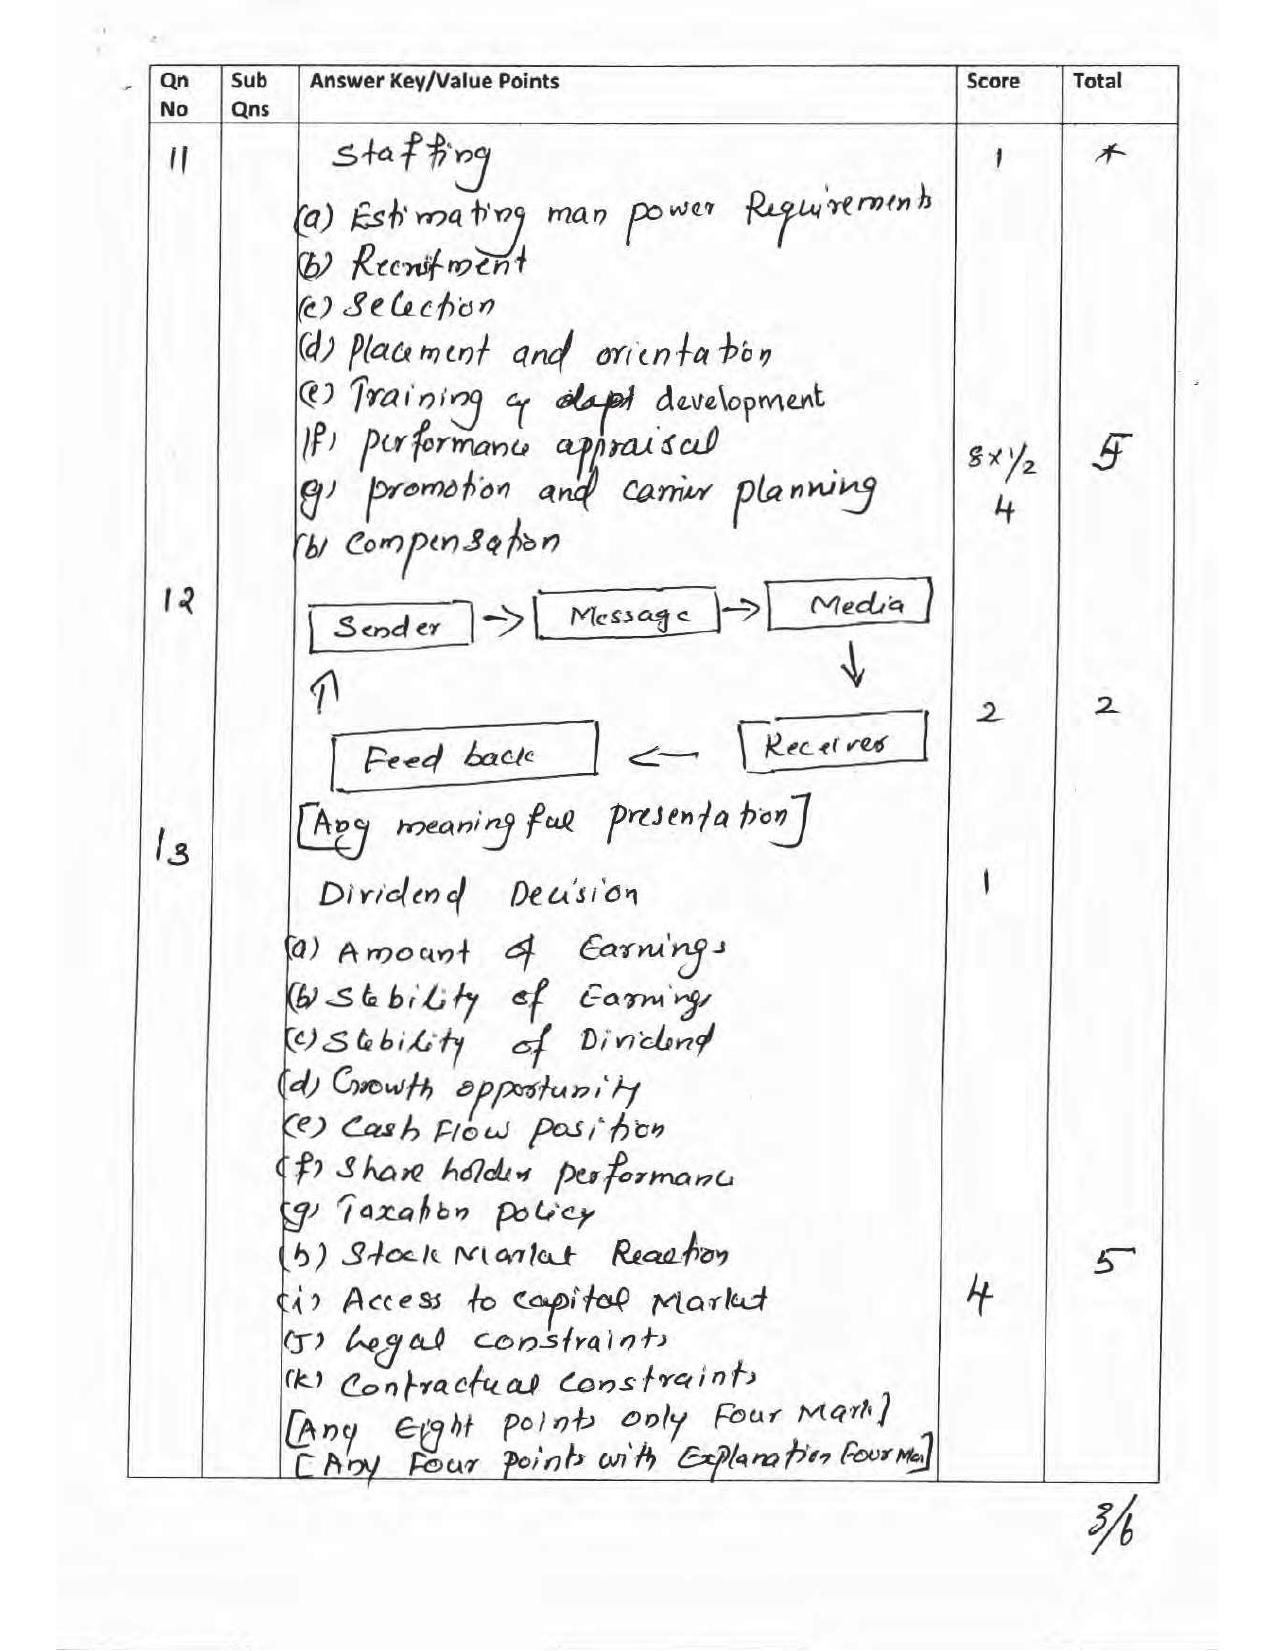 Qn No Sub Qns Answer Key/Value Points Score Total
11 Staffing 1 *
(a) Estimating man power Requirements
(b) Recruitment
(c) Selection
(d) Placement and orientation
(e) Training & development
(f) performance appraisal 8 x 1/2 5
(g) promotion and carrier planning 4
(h) Compensation
12 Sender → Message → Media
↑ ↓ 2 2
Feed back ← Receiver
[Any meaningful presentation]
13
Dividend Decision 1
(a) Amount of Earnings
(b) Stability of Earnings
(c) Stability of Dividend
(d) Growth opportunity
(e) Cash Flow position
(f) Share holders performance
(g) Taxation policy
(h) Stock Market Reaction 5
(i) Access to capital Market 4
(J) Legal constraints
(k) Contractual constraints
[Any Eight points only Four Mark]
[Any Four points with Explanation Four Mar]
3/6